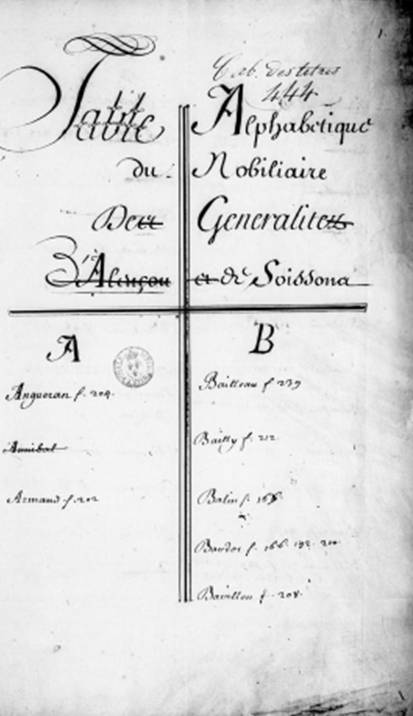 1
Cab. des titres
444
Table Alphabetique
du Nobiliaire
Des Generalitez
D'Alençon et de Soissons
A
B
Angueran f. 204
Annibal
Armand f. 202
Bailleau f. 239
Bailly f. 212
Balin f.
f. 166. 192. 200
f. 208